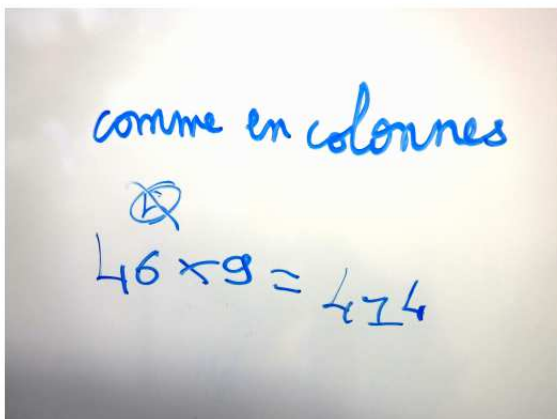 comme en colonnes
46 × 9 = 414